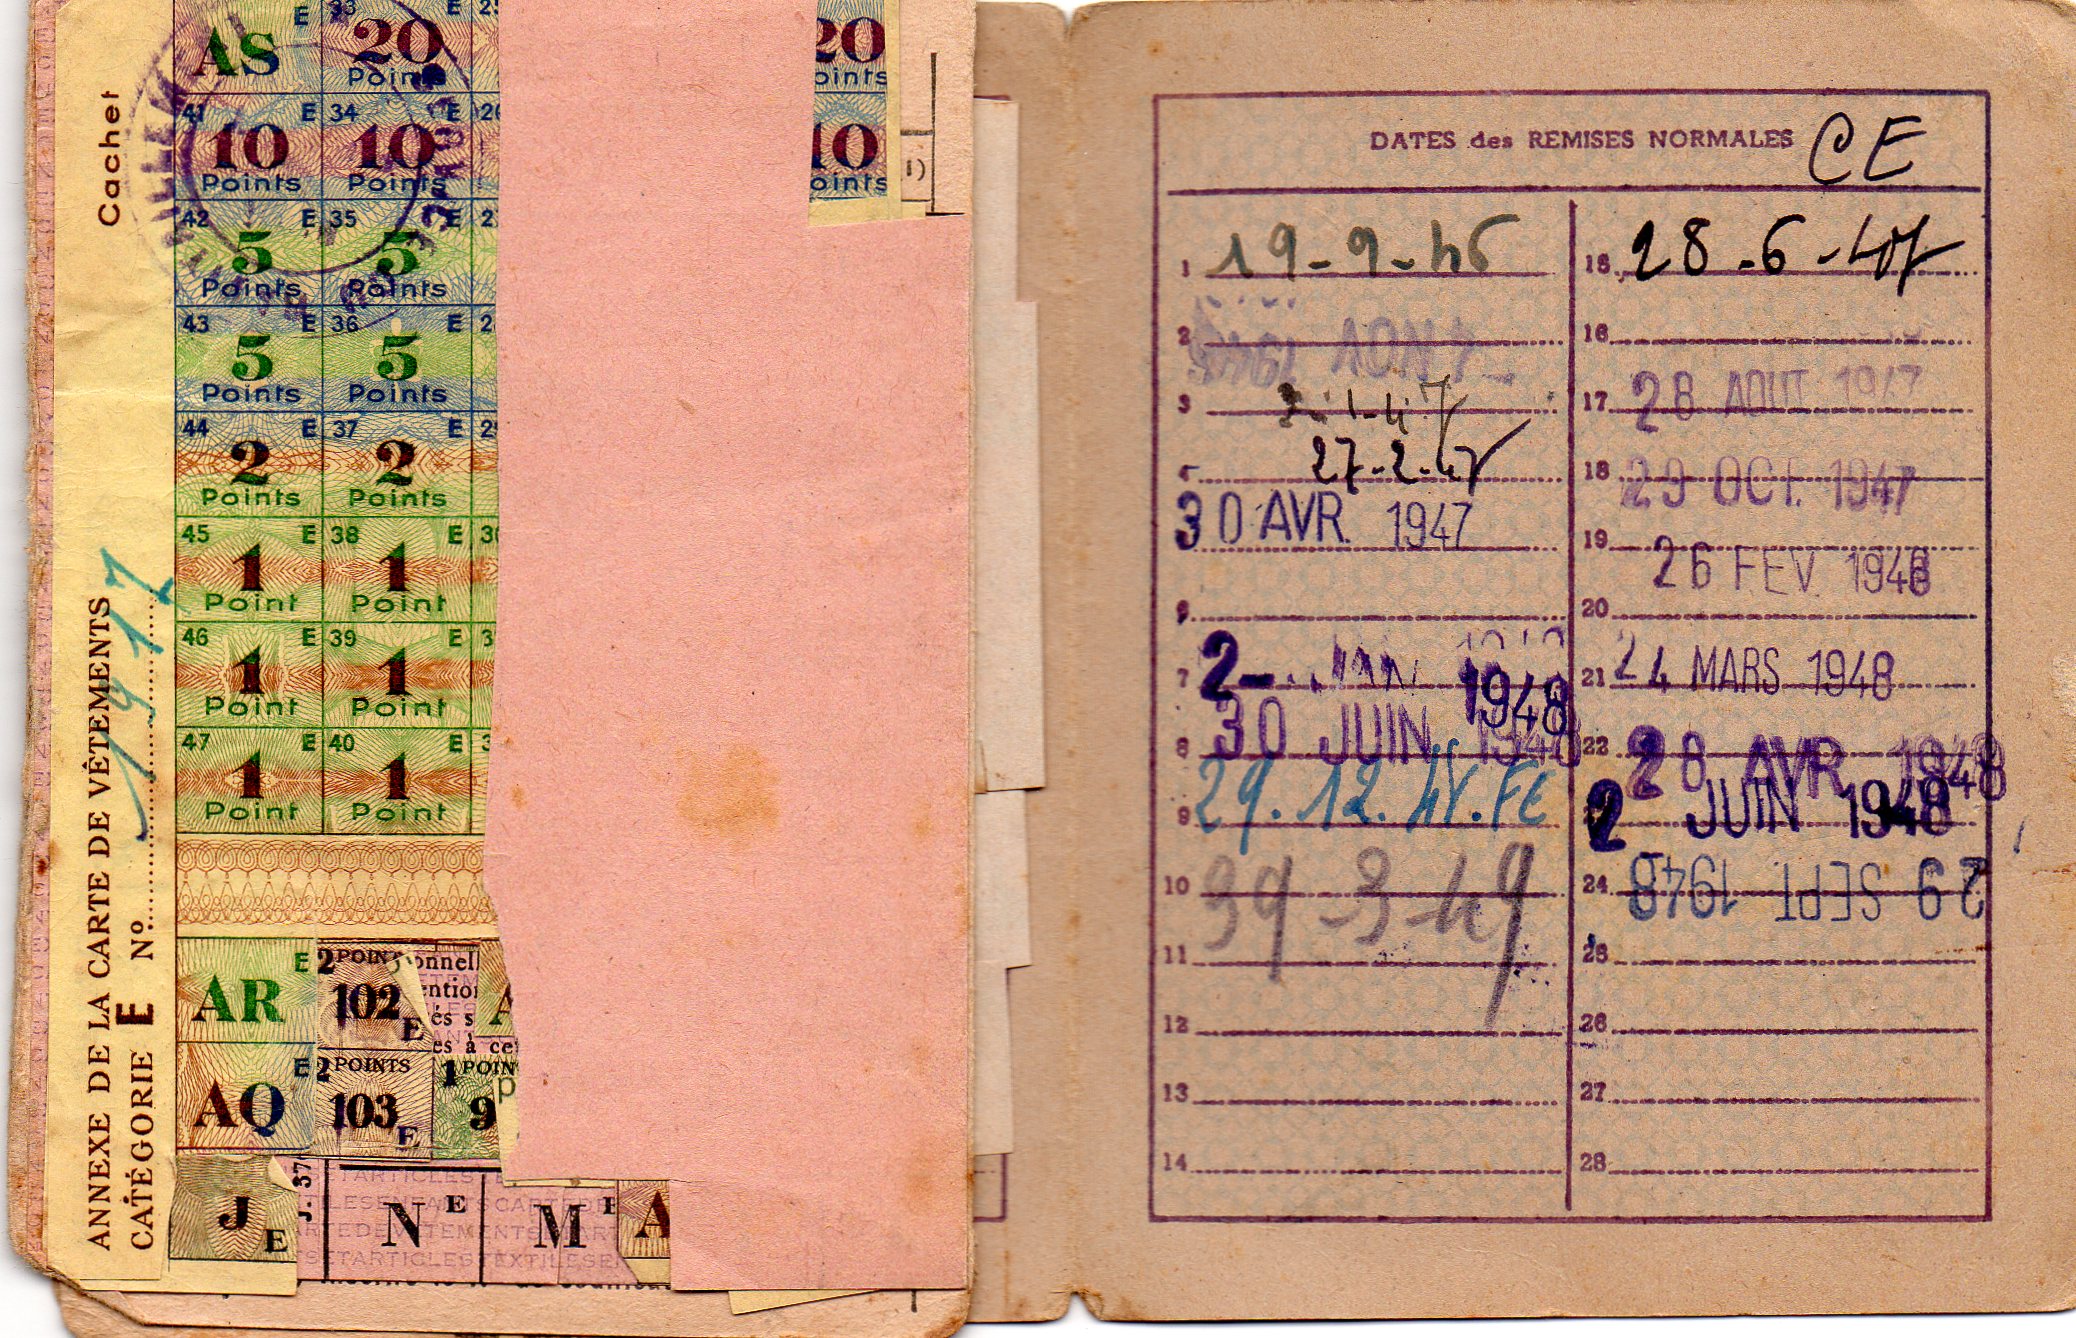 Cachet
ANNEXE DE LA CARTE DE VÊTEMENTS
CATÉGORIE E No 1947
AS E 33 20 Points E
20 Points
41 10 Points E 34 10 Points E
10 Points
42 5 Points E 35 5 Points E
43 5 Points E 36 5 Points E
44 2 Points E 37 2 Points E
45 1 Point E 38 1 Point E
46 1 Point E 39 1 Point E
47 1 Point E 40 1 Point E
AR E 2 POINTS 102 E
AQ E 2 POINTS 103 E 1 POIN 9
J E J. 37 N E M E A
DATES des REMISES NORMALES CE
1 19-9-46
2 4 NOV 1946
3 3-1-47
27-2-47
30 AVR. 1947
6
7 2- JAN 1948
8 30 JUIN 1948
9 29.12.48.FE
10 39-3-49
11
12
13
14
15 28-6-47
16
17 28 AOUT 1947
18 29 OCT. 1947
19
26 FEV. 1948
20
21 24 MARS 1948
22 28 AVR 1948
2 JUIN 1948
24 29 SEPT 1948
25
26
27
28